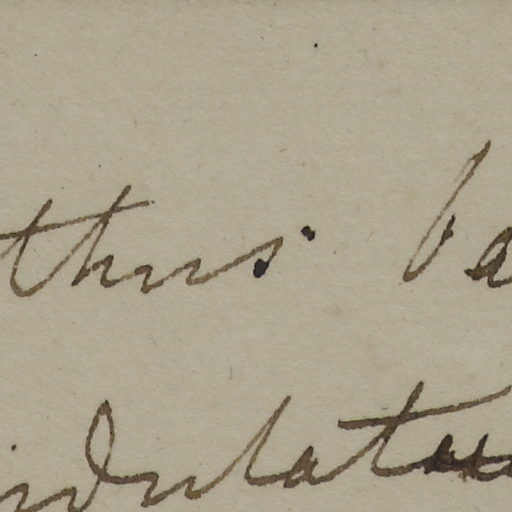 thus. ba
ndulatu